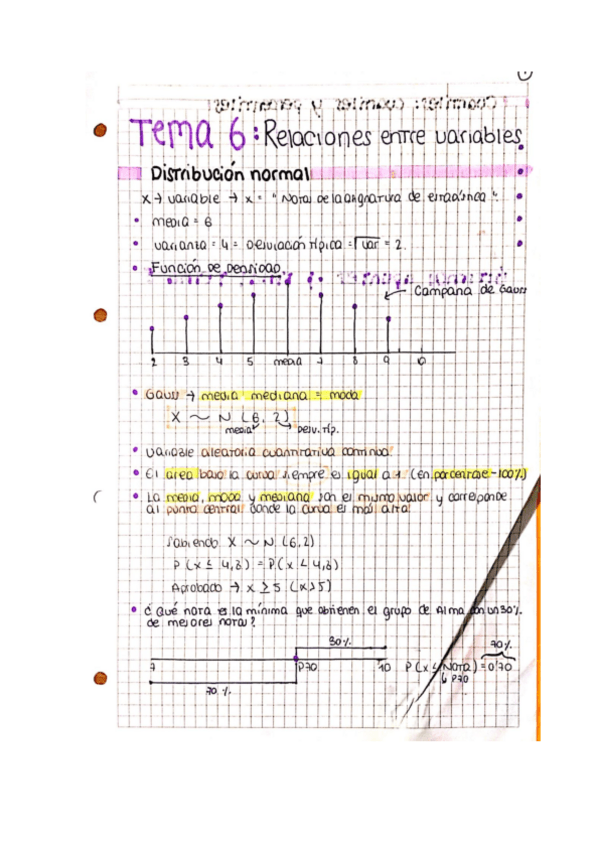 Tema 6: Relaciones entre variables
Distribución normal
X → variable → x = "Notas de la asignatura de estadística".
• media = 6
• varianza = 4 = Desviación típica = √var = 2.
• Función de Densidad
Campana de Gauss
2 3 4 5 media 7 8 9 10
• Gauss → media mediana = moda
X ~ N (6, 2)
media Desv. típ.
• Variable aleatoria cuantitativa continua
• El area bajo la curva siempre es igual a 1 (en porcentaje - 100%)
• La media, moda y mediana son el mismo valor y corresponde
al punto central donde la curva es más alta
Sabiendo X ~ N (6,2)
P (x ≤ 4,8) = P (x < 4,8)
Aprobado → x ≥ 5 (x>5)
• ¿Qué nota es la mínima que obtienen el grupo de Alma con un 30%
de mejores notas?
30%
70%
P70 10 P (x ≤ NOTA) = 0'70
↳ P70
70 %